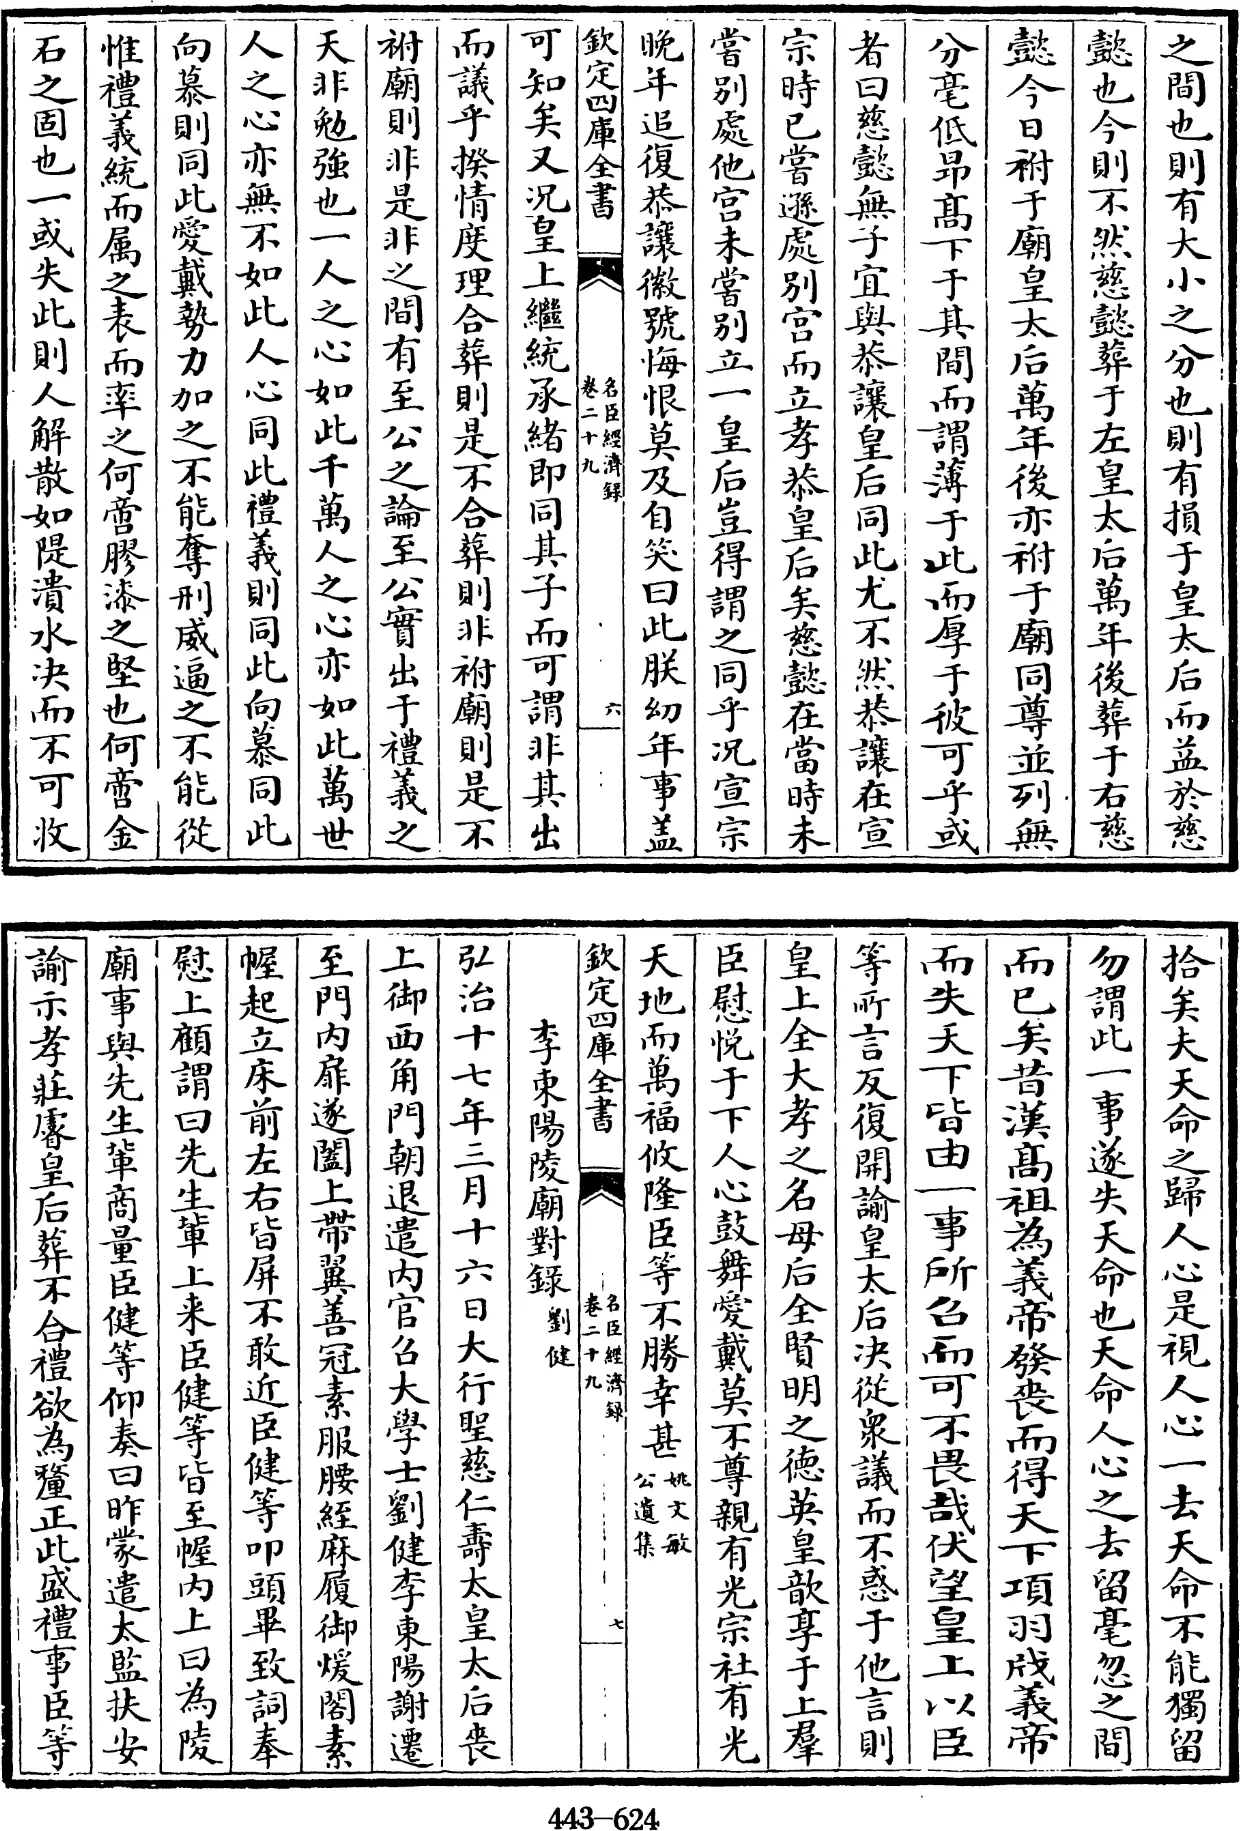 之間也則有大小之分也則有損于皇太后而益於慈
懿也今則不然慈懿葬于左皇太后萬年後葬于右慈
懿今日祔于廟皇太后萬年後亦祔于廟同尊並列無
分毫低昂髙下于其間而謂薄于此而厚于彼可乎或
者曰慈懿無子宜與恭讓皇后同此尤不然恭讓在宣
宗時已嘗遜處別宮而立孝恭皇后矣慈懿在當時未
嘗別處他宮未嘗別立一皇后豈得謂之同乎况宣宗
晚年追復恭讓徽號悔恨莫及自笑曰此朕幼年事盖
欽定四庫全書
名臣經濟録
卷二十九
六
可知矣又况皇上繼統承緒即同其子而可謂非其出
而議乎揆情度理合葬則是不合葬則非祔廟則是不
祔廟則非是非之間有至公之論至公實出于禮義之
天非勉強也一人之心如此千萬人之心亦如此萬世
人之心亦無不如此人心同此禮義則同此向慕同此
向慕則同此愛戴勢力加之不能奪刑威逼之不能從
惟禮義統而属之表而率之何啻膠漆之堅也何啻金
石之固也一或失此則人解散如隄潰水决而不可收
拾矣夫天命之歸人心是視人心一去天命不能獨留
勿謂此一事遂失天命也天命人心之去留毫忽之間
而已矣昔漢髙祖為義帝發喪而得天下項羽戕義帝
而失天下皆由一事所召而可不畏哉伏望皇上以臣
等所言反復開諭皇太后决從衆議而不惑于他言則
皇上全大孝之名母后全賢明之徳英皇歆享于上羣
臣慰悦于下人心鼓舞愛戴莫不尊親有光宗社有光
天地而萬福攸隆臣等不勝幸甚姚文敏公遺集
欽定四庫全書
名臣經濟録
卷二十九
七
李東陽陵廟對録 劉健
弘治十七年三月十六日大行聖慈仁壽太皇太后喪
上御西角門朝退遣内官召大學士劉健李東陽謝遷
至門内扉遂闔上帶翼善冠素服腰絰麻履御煖閣素
幄起立床前左右皆屏不敢近臣健等叩頭畢致詞奉
慰上顧謂曰先生軰上来臣健等皆至幄内上曰為陵
廟事與先生軰商量臣健等仰奏曰昨蒙遣太監扶安
諭示孝莊睿皇后葬不合禮欲為釐正此盛禮事臣等
443-624